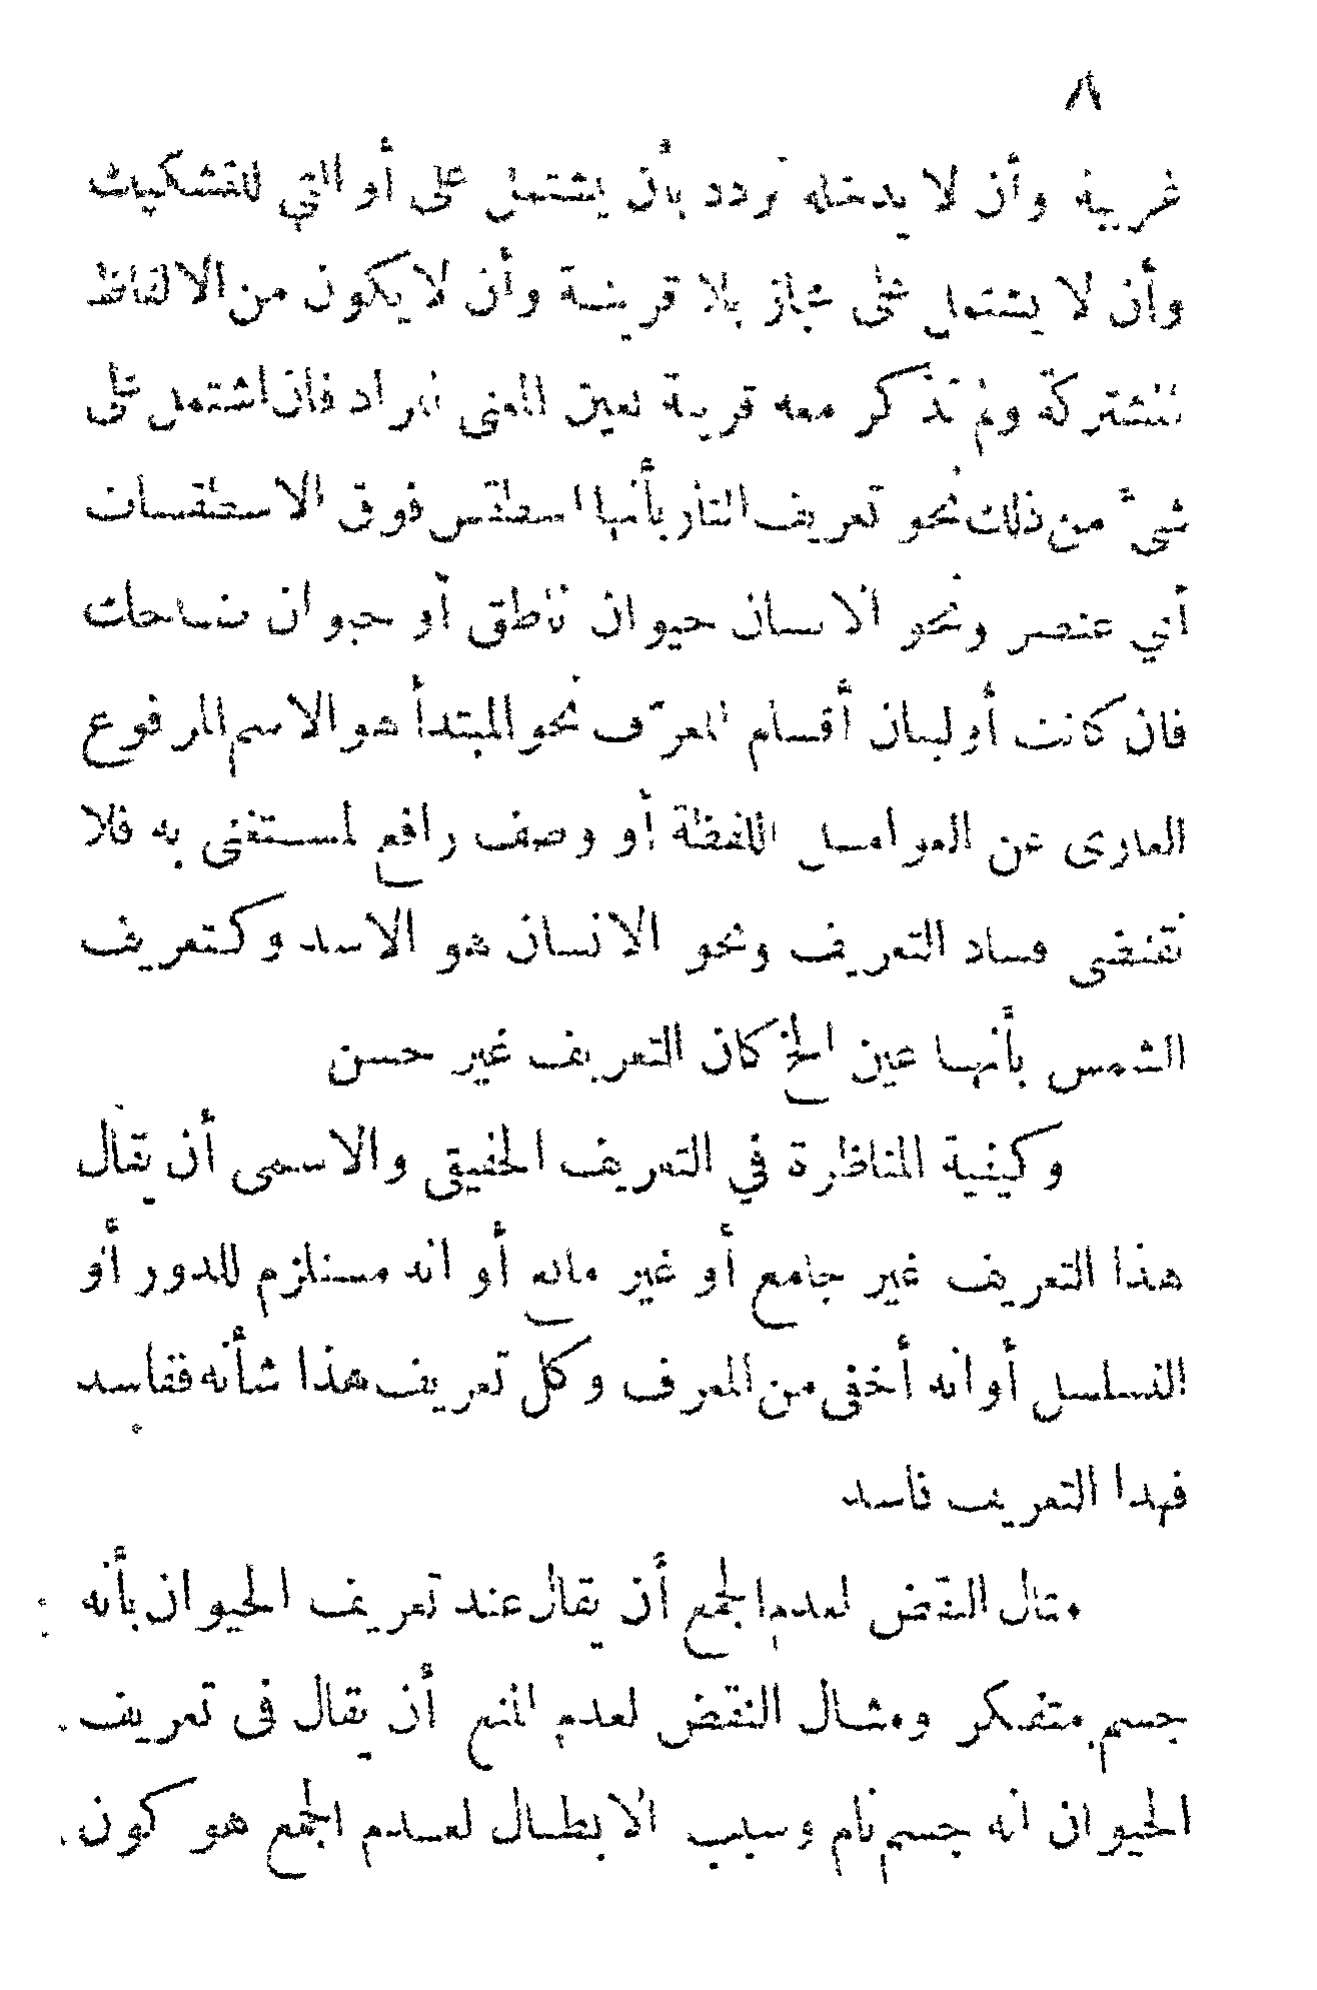 ٨
غريبة وأن لا يدخله تردد بأن يشتمل على أو التي للتشكيك
وأن لا يشتمل على مجاز بلا قرينة وأن لا يكون من الالفاظ
المشتركة ولم تذكر معه قرينة تعين المعنى المراد فان اشتمل على
شئ من ذلك نحو تعريف النار بأنها اسطقس فوق الاسطقسات
أي عنصر ونحو الانسان حيوان ناطق أو حيوان ضاحك
فان كانت أو لبيان أقسام المعرّف نحو المبتدأ هو الاسم المرفوع
العارى عن العوامل اللفظة أو وصف رافع لمستغنى به فلا
تقتضى فساد التعريف ونحو الانسان هو الاسد وكتعريف
الشمس بأنها عين الخ كان التعريف غير حسن
وكيفية المناظرة في التعريف الحقيقى والاسمى أن يقال
هذا التعريف غير جامع أو غير مانع أو انه مستلزم للدور أو
التسلسل أو انه أخفى من المعرف وكل تعريف هذا شأنه ففاسد
فهذا التعريف فاسد
مثال النقض لعدم الجمع أن يقال عند تعريف الحيوان بأنه
جسم متفكر ومثال النقض لعدم المنع أن يقال فى تعريف
الحيوان انه جسم نام وسبب الابطال لعدم الجمع هو كون